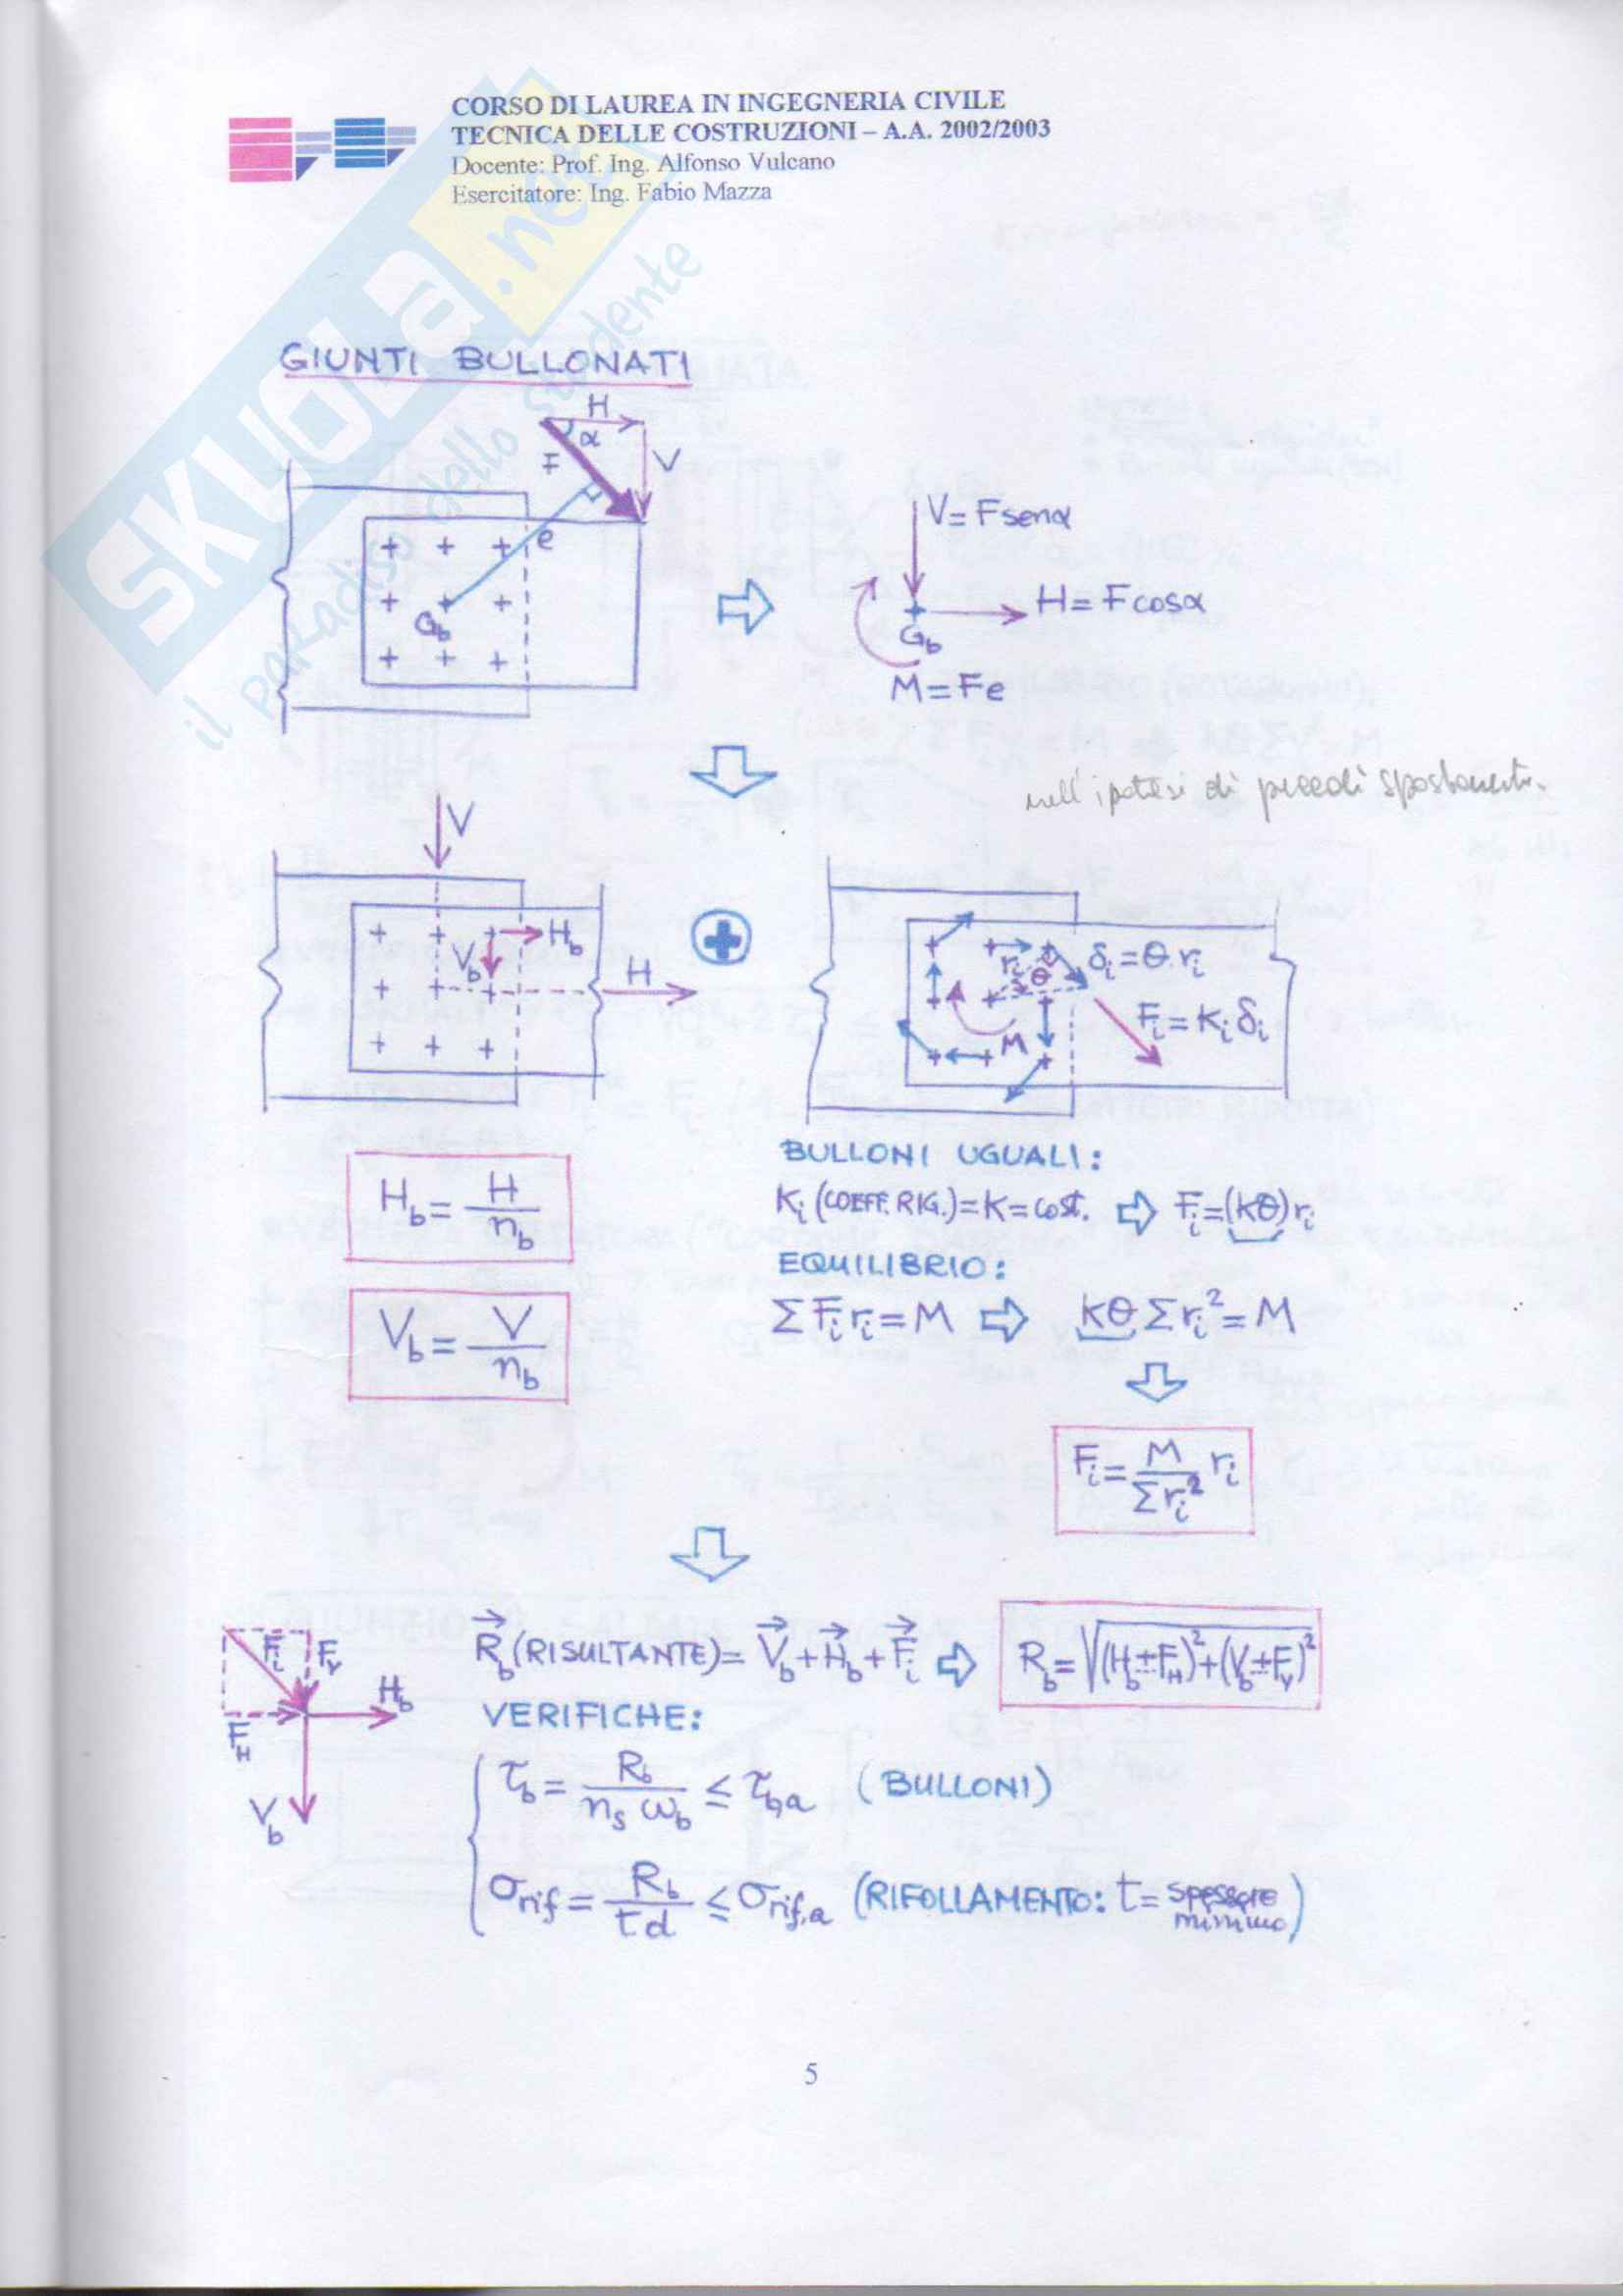 CORSO DI LAUREA IN INGEGNERIA CIVILE
TECNICA DELLE COSTRUZIONI – A.A. 2002/2003
Docente: Prof. Ing. Alfonso Vulcano
Esercitatore: Ing. Fabio Mazza
SKUOLA.net
il paradiso dello studente
GIUNTI BULLONATI
H
α
F
V
e
G_b
V = F senα
H = F cosα
G_b
M = Fe
nell'ipotesi di piccoli spostamenti.
V
V_b
H_b
H
r_i
θ
δ_i = θ·r_i
M
F_i = K_i δ_i
H_b = H / n_b
V_b = V / n_b
BULLONI UGUALI:
K_i (COEFF. RIG.) = K = cost. ⇨ F_i = (kθ) r_i
EQUILIBRIO:
Σ F_i r_i = M ⇨ kθ Σ r_i² = M
F_i = M / Σ r_i² r_i
F_i
F_V
H_b
F_H
V_b
R_b (RISULTANTE) = V_b + H_b + F_i ⇨ R_b = √((H_b ± F_H)² + (V_b ± F_V)²)
VERIFICHE:
τ_b = R_b / n_s ω_b ≤ τ_b,a (BULLONI)
σ_rif = R_b / t d ≤ σ_rif,a (RIFOLLAMENTO: t = spessore minimo)
5